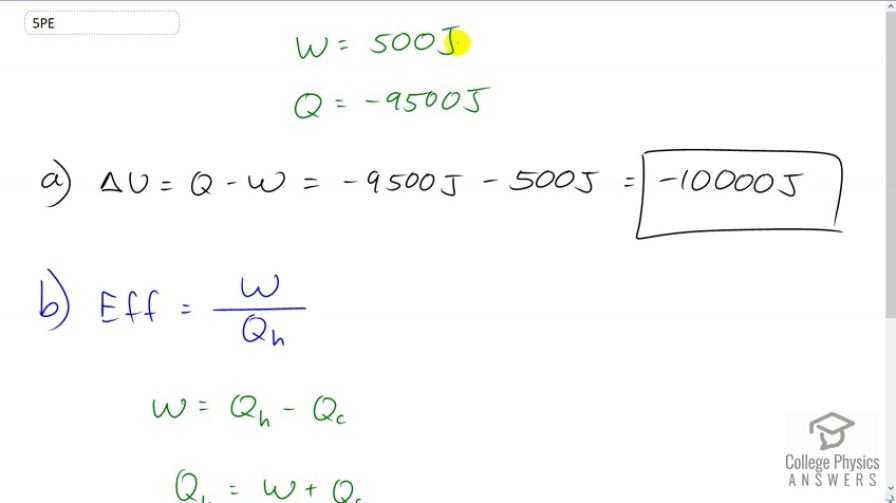 5PE
W = 500J
Q = -9500J
a) ΔU = Q - W = -9500J - 500J = -10000J
b) Eff = W / Qh
W = Qh - Qc
Qh = W + Qc
College Physics
ANSWERS